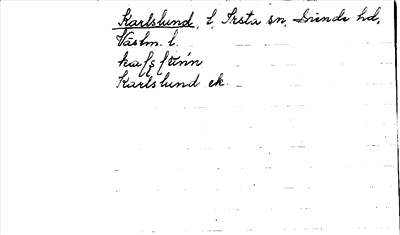 Karlslund, l, Irsta sn, Siende hd,
Västm. l.
Karlslund ek.